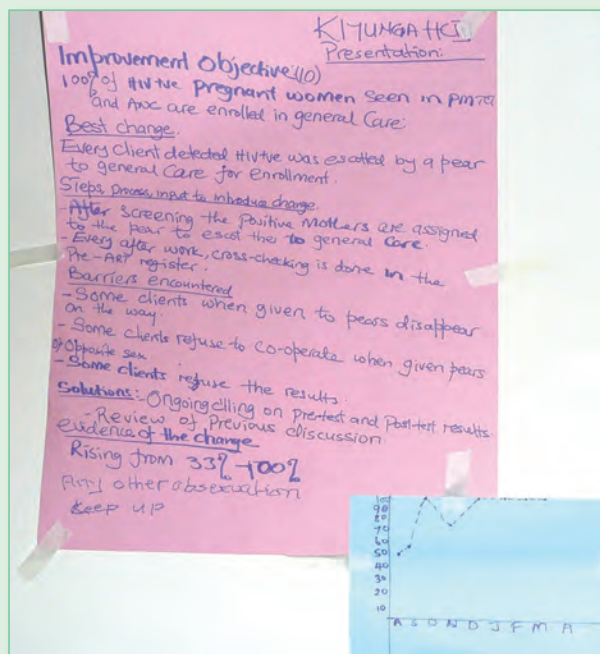 KIYUNGA HC
Presentation:
Improvement Objective:(10)
100% of HIV+ve pregnant women seen in PMTCT
and ANC are enrolled in general Care.
Best change.
Every client detected HIV+ve was escotted by a pear
to general Care for enrollment.
Steps, process, input to introduce change.
-After screening the Positive Mothers are assigned
to the pear to escot them to general Care.
-Every after work, cross-checking is done in the
Pre-ART register.
Barriers encountered
-Some clients when given to pears disappear
on the way.
-Some clients refuse to co-operate when given pears
of Opposite sex.
-Some clients refuse the results.
Solutions:-Ongoing on Pre-test and Post-test results.
-Review of Previous discussion
evidence of the change
Rising from 33% → 100%
Any other observation
Keep up
90
80
70
60
50
40
30
20
10
A S O N D J F M A